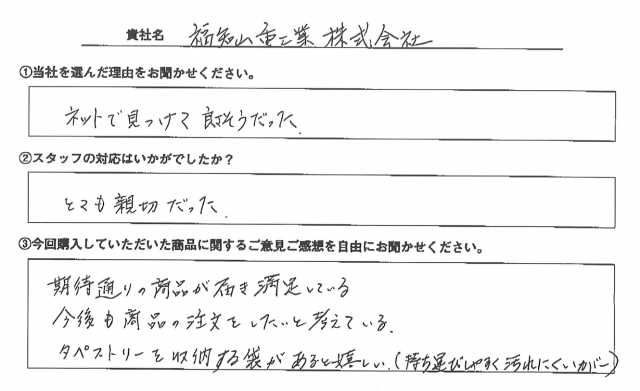 貴社名 福知山重工業 株式会社
①当社を選んだ理由をお聞かせください。
ネットで見つけて 良さそうだった.
②スタッフの対応はいかがでしたか？
とても 親切 だった.
③今回購入していただいた商品に関するご意見ご感想を自由にお聞かせください。
期待通りの商品が届き満足している
今後も商品の注文をしたいと考えている.
タペストリーを収納する袋があると嬉しい.(持ち運びしやすく汚れにくいカバー)